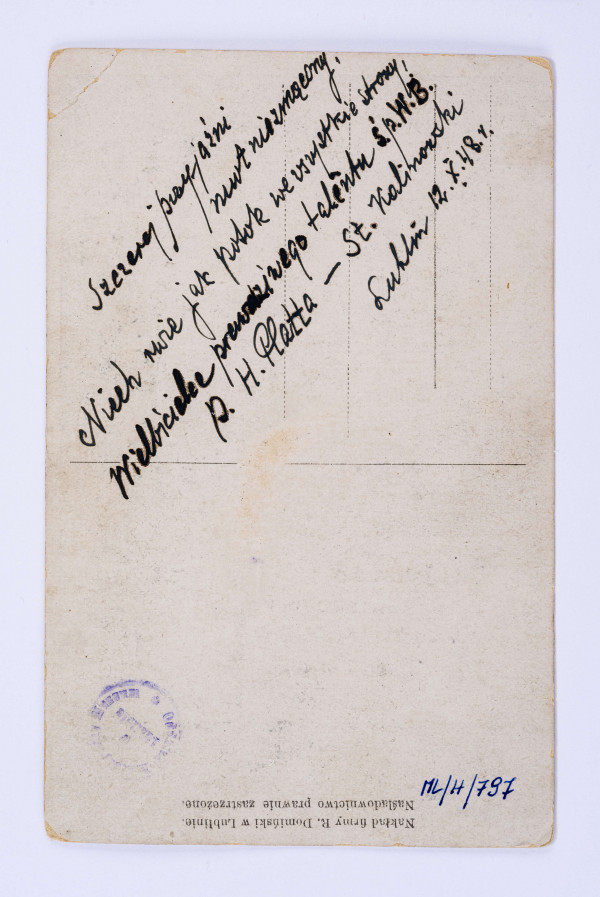 Szczerej przyjaźni
nurt niezmącony,
Niech rwie jak potok we wszystkie strony,
Wielbicielce prawdziwego talentu ś.p. W. B.
p. H. Platta — St. Kalinowski
Lublin 12.X.48 r.
ML/H/797
Nakład firmy R. Domiński w Lublinie.
Naśladownictwo prawnie zastrzeżone.